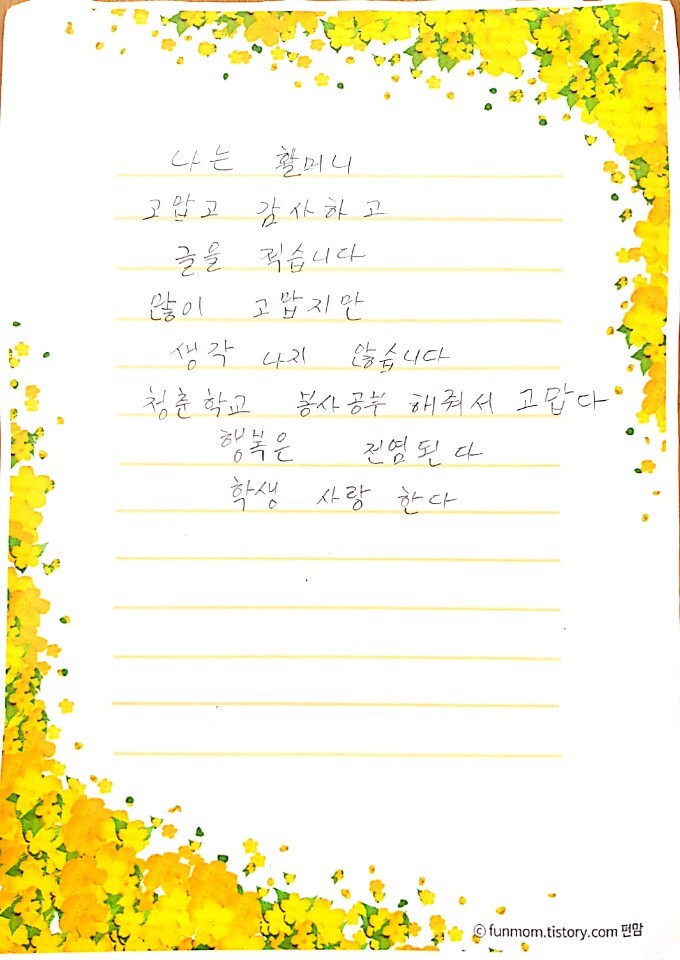 나는 활머니
고맙고 감사하고
글을 적습니다
많이 고맙지만
생각 나지 않습니다
청춘학교 봉사공부 해줘서 고맙다
행복은 전염된다
학생 사랑 한다
ⓒ funmom.tistory.com 펀맘